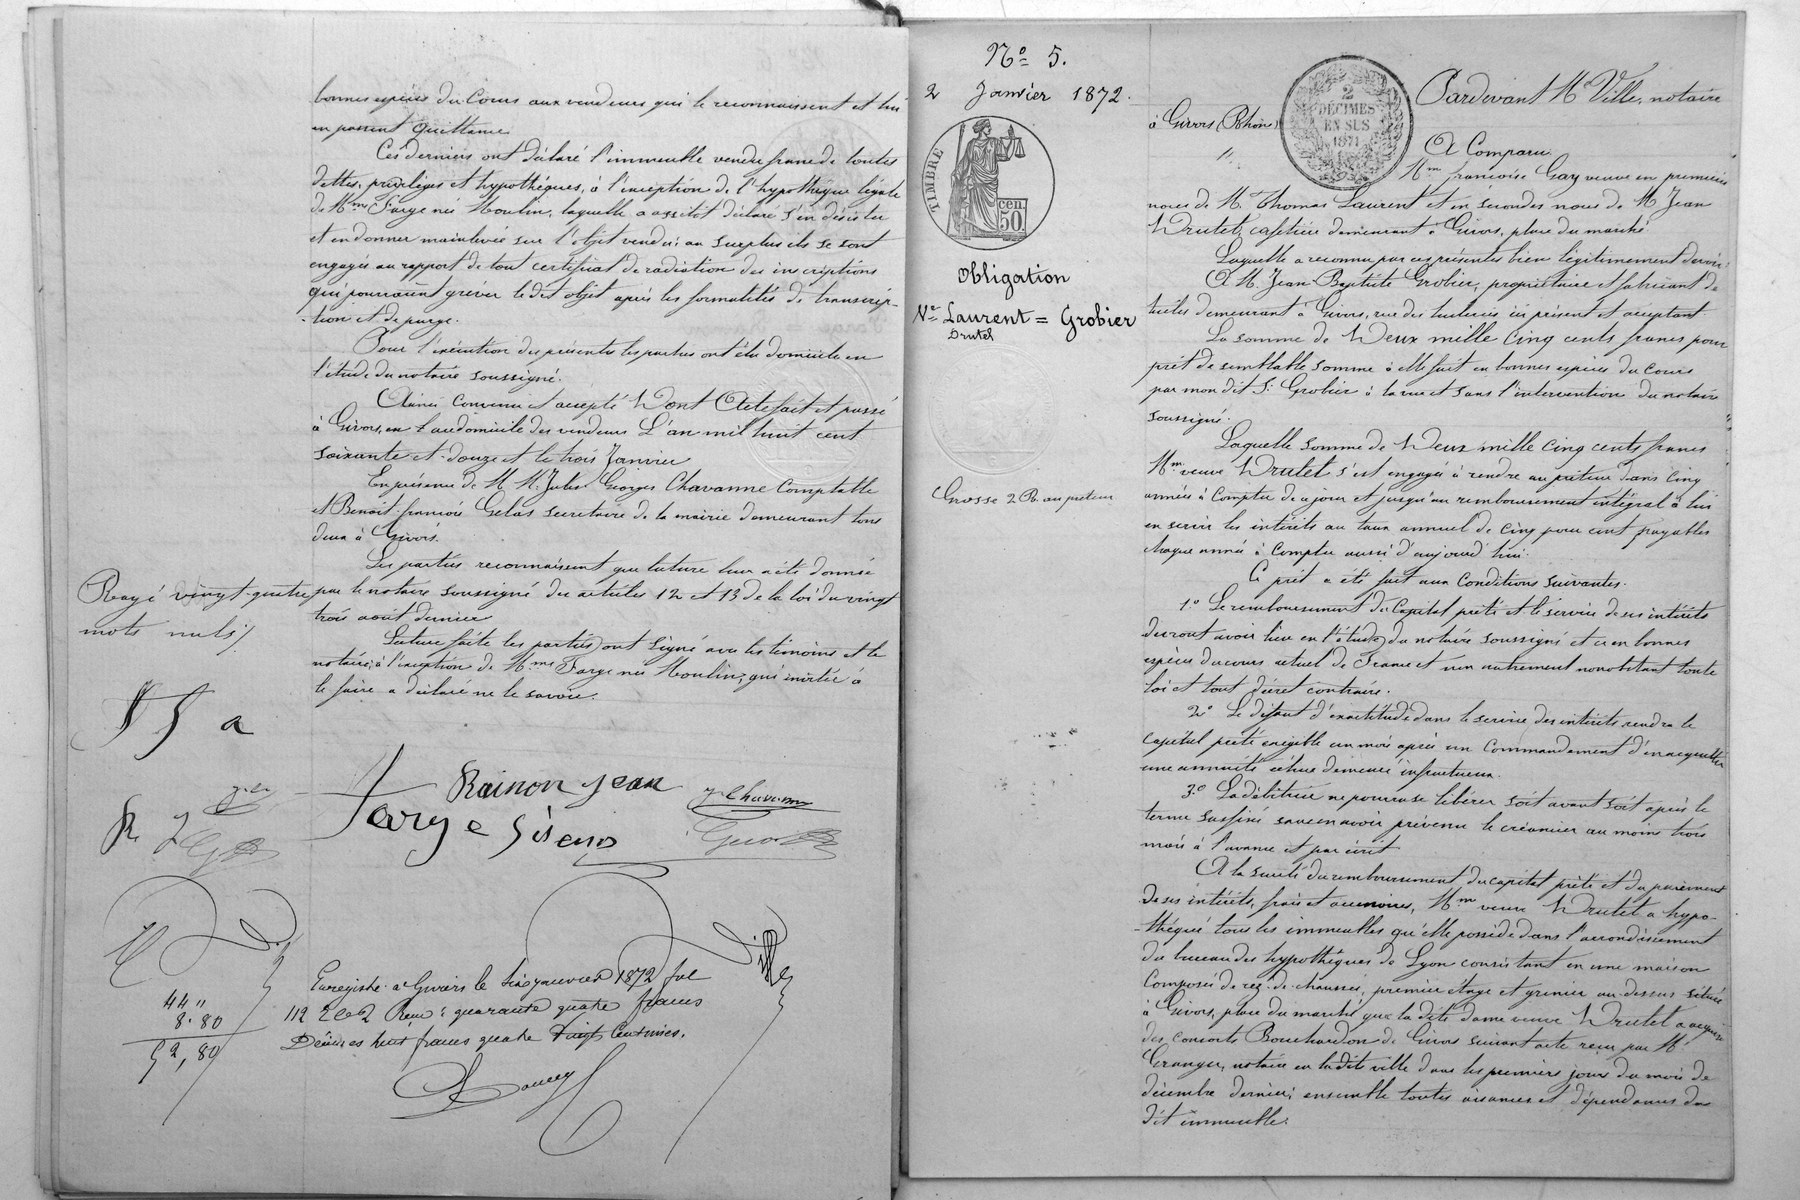 bonnes espèces du Cours aux vendeurs qui le reconnaissent et lui
en passent quittance
Ces derniers ont déclaré l'immeuble vendu franc de toutes
dettes, privilèges et hypothèques, à l'exception de l'hypothèque légale
de Mme Farge née Moulin, laquelle a aussitôt déclaré s'en désister
et en donner mainlevée sur l'objet vendu; au surplus ils se sont
engagés au rapport de tout certificat de radiation des inscriptions
qui pourraient grever le dit objet après les formalités de transcrip-
-tion et de purge.
Pour l'exécution des présentes les parties ont élu domicile en
l'étude du notaire soussigné.
Ainsi convenu et accepté Dont Acte fait et passé
à Givors, en & au domicile des vendeurs L'an mil huit cent
soixante et douze et le trois Janvier
En présence de M. M. Jules Georges Chavanne Comptable
et Benoît-françois Gelas secrétaire de la mairie demeurant tous
deux à Givors.
Les parties reconnaissent que lecture leur a été donnée
Rayé vingt-quatre par le notaire soussigné des articles 12 et 13 de la loi du vingt
mots nuls/.
trois août dernier
Lecture faite les parties ont signé avec les témoins et le
notaire, à l'exception de Mme Farge née Moulin, qui invitée à
le faire a déclaré ne le savoir.
Rainon jean
J. Chavanne
farge
Ville
Enregistré à Givors le six janvier 1872 fol
112 Rco 2 Reçu: quarante quatre francs
Décimes huit francs quatre vingt Centimes.
44 "
8. 80
52, 80
No 5.
2 Janvier 1872.
TIMBRE
50 cen
Obligation
Ve Laurent = Grobier
Drutel
Grosse 2 R. au prêteur
2
DÉCIMES
EN SUS
1871
Pardevant Me Ville, notaire
à Givors (Rhône)
A Comparu
Mme françoise Gay veuve en premières
noces de M. Thomas Laurent et en secondes noces de M Jean
Drutel, cafetière demeurant à Givors, place du marché
Laquelle a reconnu par ces présentes bien légitimement devoir:
A M. Jean-Baptiste Grobier, propriétaire et fabricant de
tuiles demeurant à Givors, rue des tuileries, ici présent et acceptant
La somme de Deux mille cinq cents francs pour
prêt de semblable somme à elle fait en bonnes espèces du Cours
par mon dit Sr Grobier à la vue et sans l'intervention du notaire
soussigné.
Laquelle somme de Deux mille cinq cents francs
Mme veuve Drutel s'est engagée à rendre au prêteur dans cinq
années à Compter de ce jour et jusqu'au remboursement intégral à lui
en servir les intérêts au taux annuel de cinq pour cent payables
chaque année à Compter aussi d'aujourd'hui.
Ce prêt a été fait aux Conditions suivantes.
1o Le remboursement du Capital prêté et le service de ses intérêts
devront avoir lieu en l'étude du notaire soussigné et ce en bonnes
espèces du cours actuel de France et non autrement nonobstant toute
loi et tout décret contraire.
2o Le défaut d'exactitude dans le service des intérêts rendra le
capital prêté exigible un mois après un Commandement d'en acquitter
une annuité échue demeuré infructueux.
3o La débitrice ne pourra se libérer soit avant soit après le
terme susfixé sans en avoir prévenu le créancier au moins trois
mois à l'avance et par écrit
A la sureté du remboursement du capital prêté et du paiement
de ses intérêts, frais et accessoires, Mme veuve Drutel a hypo-
-théqué tous les immeubles qu'elle possède dans l'arrondissement
du bureau des hypothèques de Lyon consistant en une maison
Composée de rez-de-chaussée, premier étage et grenier au-dessus située
à Givors, place du marché que la dite dame veuve Drutel a acquise
des consorts Bouchardon de Givors suivant acte reçu par Me
Granger, notaire en la dite ville dans les premiers jours du mois de
décembre dernier; ensemble toutes aisances et dépendances du
dit immeuble.